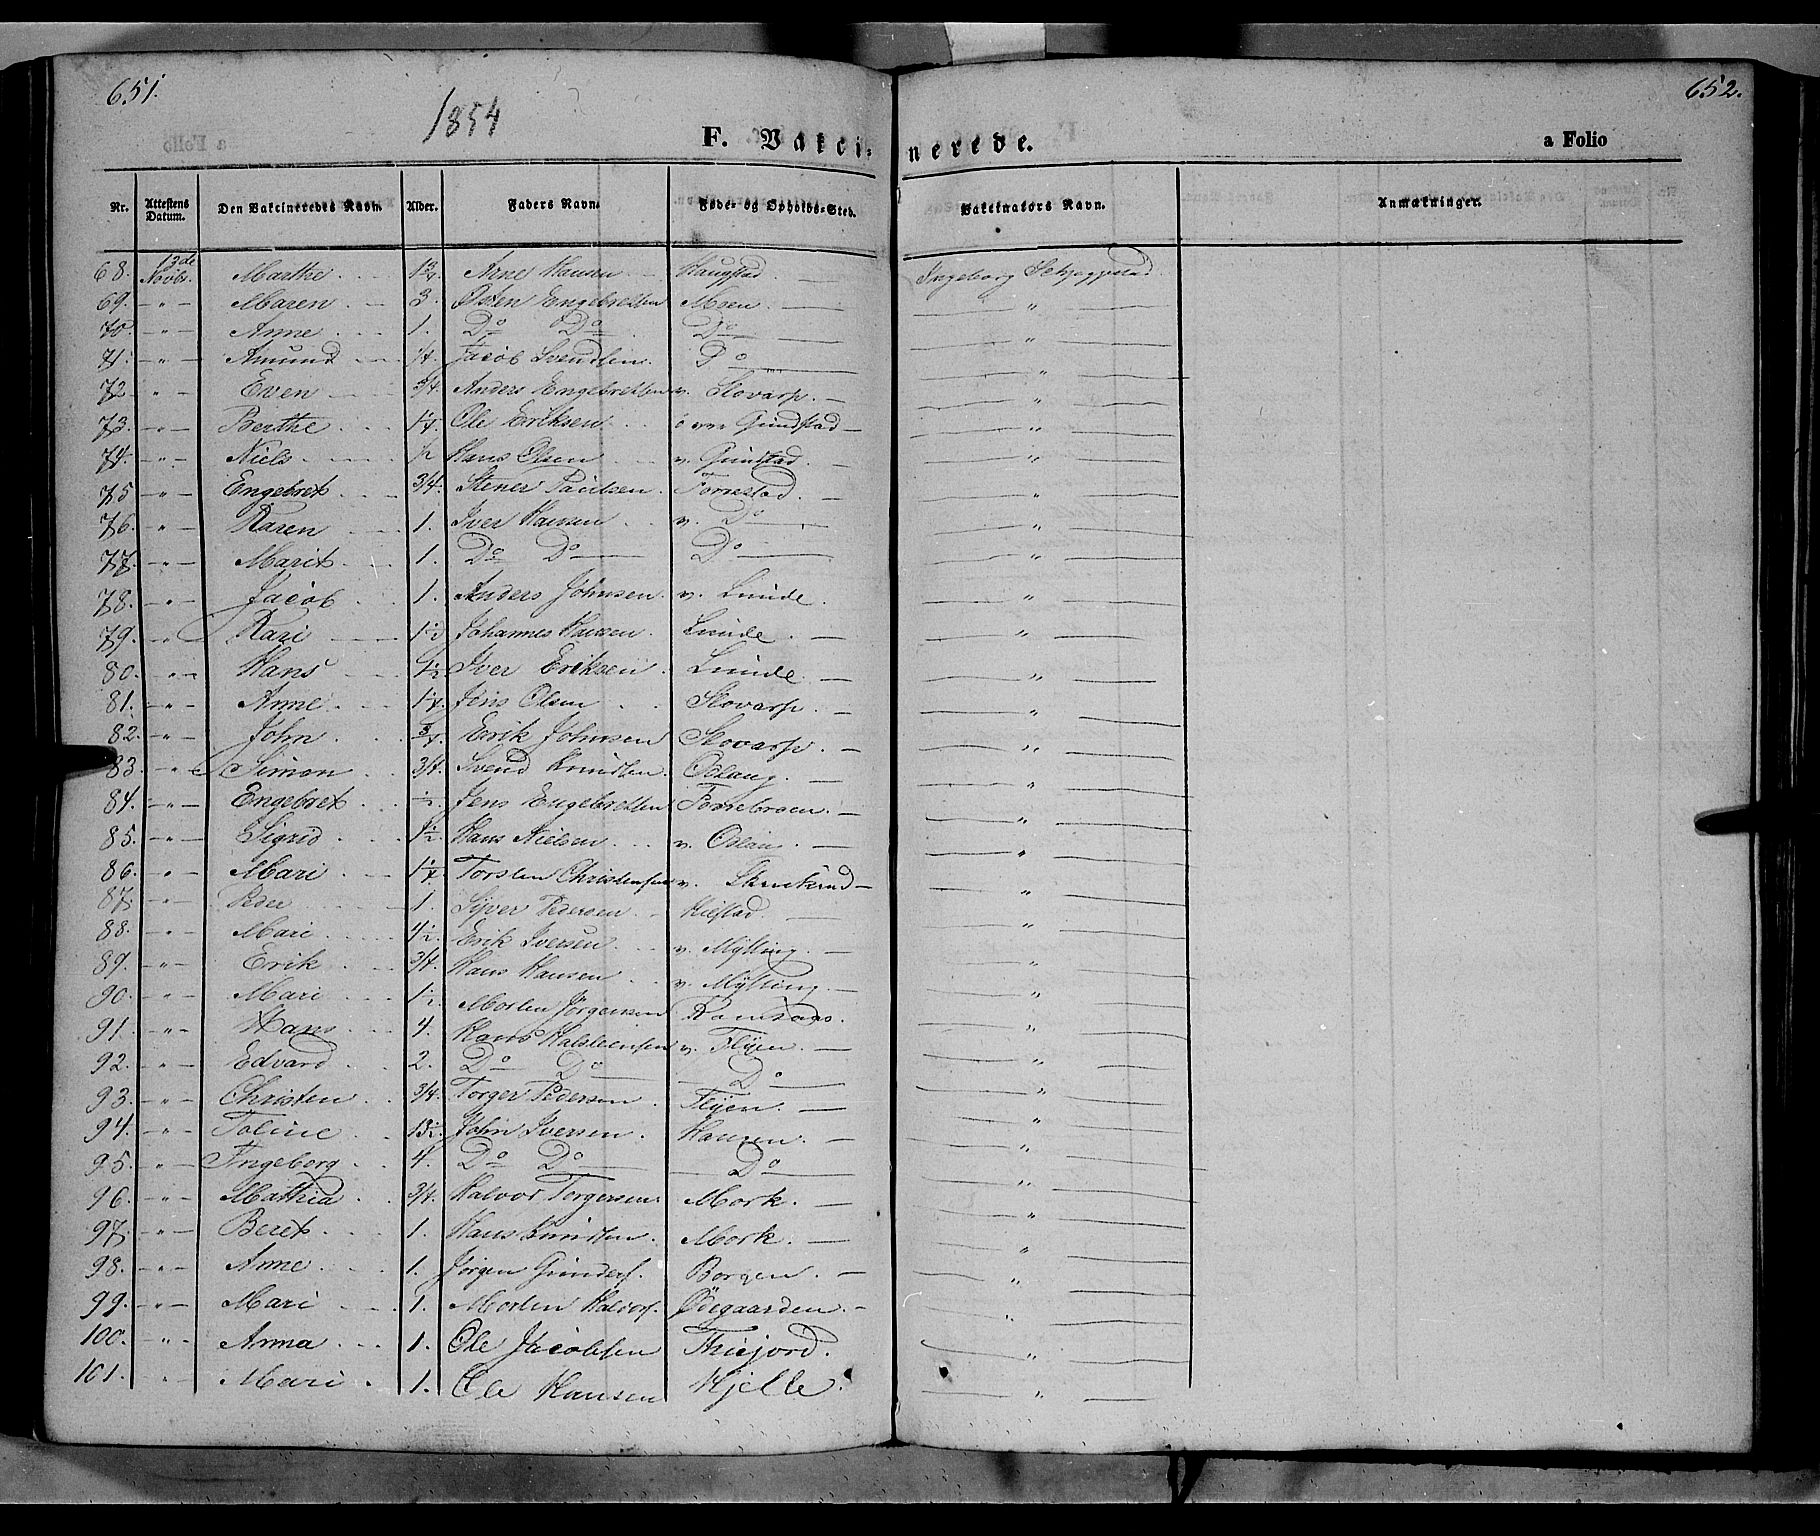 651.
652.
1854
F. Vakcinerede.
a Folio
Nr. Attestens Datum. Den Vakcineredes Navn. Alder. Faders Navn. Føde- og Opholds-Sted. Vakcinators Navn. Anmærkninger.
68. 13de Novbr. Marthe 1½ Arne Hansen Haugstad Ingeborg Schjeggestad
69. -"- Maren 3. Østen Engebretsen Moen "
70. -"- Anne 1. Do Do Do "
71. -"- Amund ¼. Jacob Svendsen. Do "
72 -"- Even ¾. Anders Engebretsen v. Slovarp. "
73. -"- Berthe 1¼ Ole Eriksen Grindstad "
74. -"- Niels ½ Hans Olsen v. Grinstad. "
75 -"- Engebret ¾. Stener Paulsen. Forrestad. "
76. -"- Karen 1. Iver Hansen v. Do "
77. -"- Marit 1. Do Do Do "
78. -"- Jacob 1. Anders Johnsen v. Lunde. "
79. -"- Kari 1½ Johannes Hansen. Lunde. "
80. -"- Hans ½ Iver Eriksen Lunde. "
81. -"- Anne 1¼. Jens Olsen Slovarp. "
82. -"- John ¾. Erik Johnsen Slovarp. "
83. -"- Simon ¾. Svend Knudsen. Oslaug. "
84. -"- Engebret ½. Jens Engebretsen Forrebroen. "
85. -"- Sigrid 1½. Hans Nielsen v. Oslau. "
86. -"- Mari 1¼ Torsten Christensen v. Skrukrud "
87. -"- Peder 1. Syver Pedersen Kiestad. "
88. -"- Mari 4½. Erik Iversen v. Mylling. "
89. -"- Erik ¾. Hans Hansen v. Mylling. "
90. -"- Mari 1½. Morten Jørgensen "
91. -"- Hans 4. Hans Halsteensen v. Flyen. "
92. -"- Edvard 2. Do Do Do "
93. -"- Christen ¾. Torger Pedersen. Flyen. "
94. -"- Toline 13½. John Iversen. Haugen. "
95. -"- Ingeborg 4. Do Do Do "
96. -"- Mathia ¾. Halvor Torgersen. Mork. "
97. -"- Beret 1. Hans Knudsen. Mork. "
98. -"- Anne 1. Jørgen Gunders. Borgen. "
99. -"- Mari 1. Morten Halvors. Ødegaarden. "
100. -"- Anna 1. Ole Jacobsen "
101. -"- Mari 1. Ole Hansen Kjelle. "